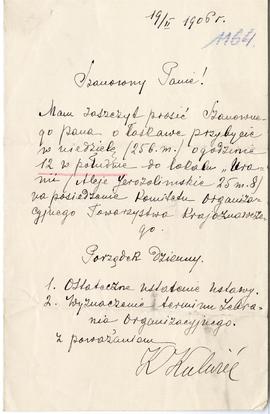 19/II 1906 r.
1164.
Szanowny Panie!
Mam zaszczyt prosić Szanowne-
go pana o łaskawe przybycie
w niedzielę /25 b.m./ o godzinie
12 w południe do lokalu „Ura-
nii /Aleje Jerozolimskie 2 m. 8/
na posiedzenie Komitetu Organiza-
cyjnego Towarzystwa Krajoznawcze-
go.
Porządek Dzienny.
1. Ostateczne ustalenie ustawy.
2. Wyznaczenie terminu Zebra-
nia Organizacyjnego.
z poważaniem
K Kulwieć